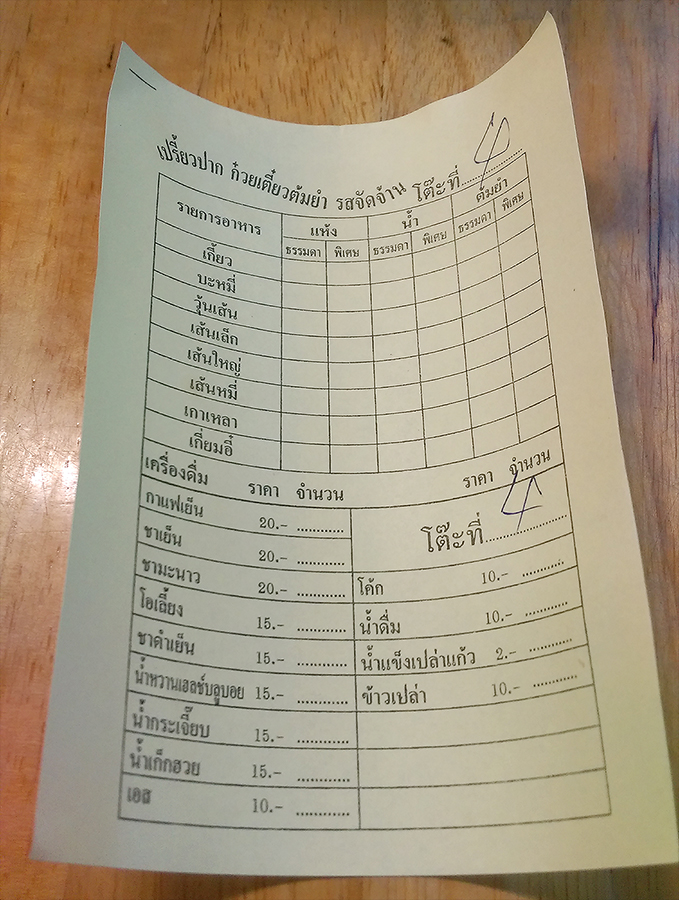 เปรี้ยวปาก ก๋วยเตี๋ยวต้มยำ รสจัดจ้าน โต๊ะที่ 4
รายการอาหาร แห้ง น้ำ ต้มยำ
ธรรมดา พิเศษ ธรรมดา พิเศษ ธรรมดา พิเศษ
เกี้ยว
บะหมี่
วุ้นเส้น
เส้นเล็ก
เส้นใหญ่
เส้นหมี่
เกาเหลา
เกี่ยมอี๋
เครื่องดื่ม ราคา จำนวน ราคา จำนวน
กาแฟเย็น 20.- ............
โต๊ะที่ 4
ชาเย็น 20.- ............
ชามะนาว 20.- ............ โค้ก 10.- ..........
โอเลี้ยง 15.- ............ น้ำดื่ม 10.- ..........
ชาดำเย็น 15.- ............ น้ำแข็งเปล่าแก้ว 2.- ..........
น้ำหวานเฮลซ์บลูบอย 15.- ............ ข้าวเปล่า 10.- ..........
น้ำกระเจี๊ยบ 15.- ............
น้ำเก็กฮวย 15.- ............
เอส 10.- ............